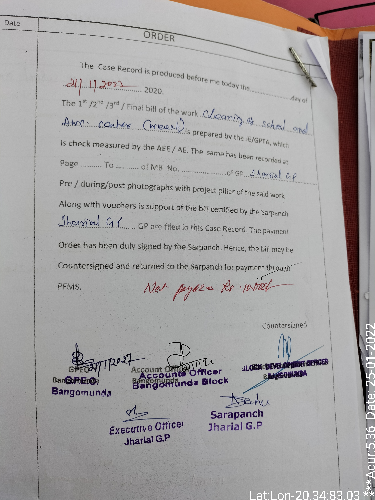 Date
ORDER
The Case Record is produced before me today the ............ day of
............ 2020.
The 1st /2nd /3rd / Final bill of the work Cleaning of school and
center is prepared by the JE/GPTA, which
is check measured by the AEE / AE. The same has been recorded at
Page ......... To .......... of MB No. .................. of GP Jharial G.P
Pre / during/post photographs with project pillar of the said work
Along with vouchers is support of the bill certified by the Sarpanch
Jharial GP ...... GP are filed in this Case Record. The payment
Order has been duly signed by the Sarpanch. Hence, the bill may be
Countersigned and returned to the Sarpanch for payment through
PFMS.
Net payable Rs.
Countersigned
GPEO
Bangomunda
Account Officer
Bangomunda
GPEO
Bangomunda
Accounts Officer
Bangomunda Block
BLOCK DEVELOPMENT OFFICER
BANGOMUNDA
Executive Officer
Jharial G.P
Sarapanch
Jharial G.P
Lat:Lon-20.34:83.03***Acur:5.36 Date: 25-01-2022